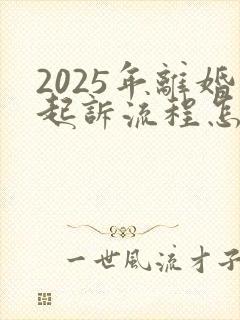 2025年離婚
起訴流程怎
一世風流才子